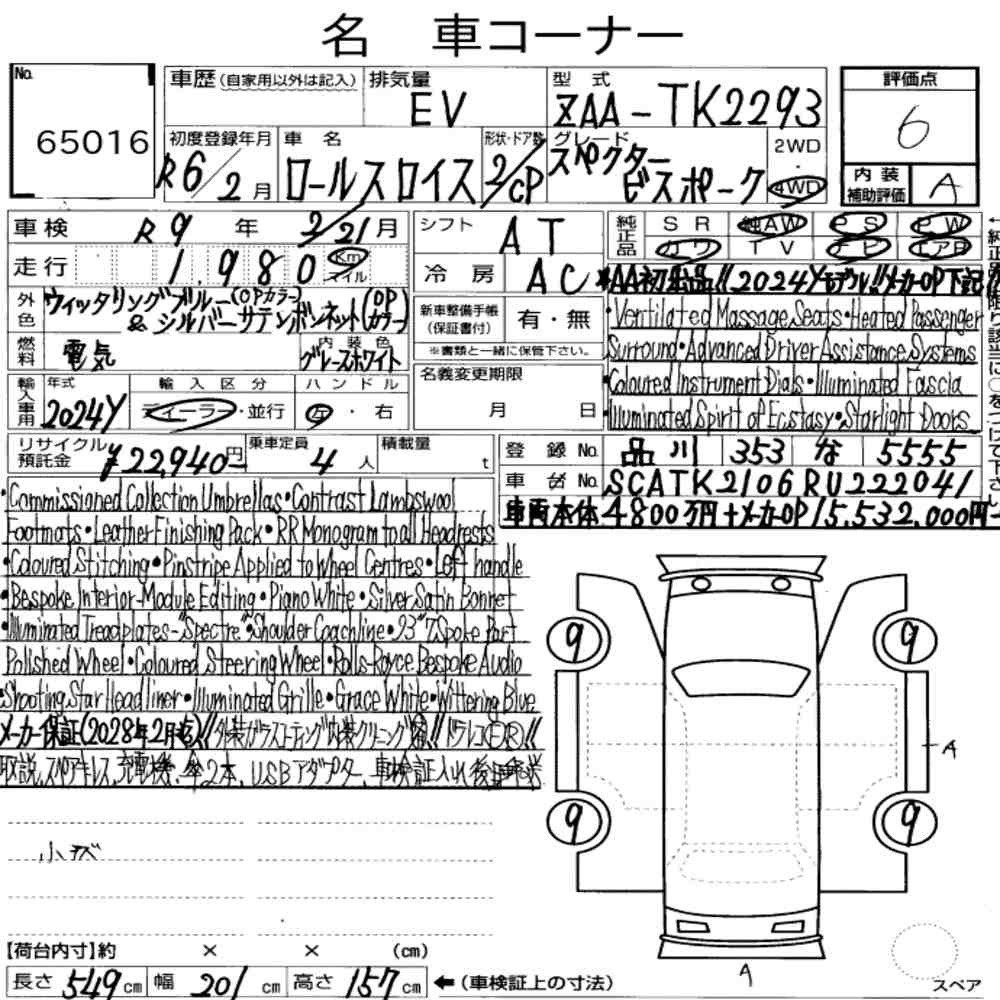 名車コーナー
No. 65016
車歴(自家用以外は記入)
排気量 EV
型式 ZAA-TK2293
評価点 6
初度登録年月 R6/2月
車名 ロールスロイス
形状・ドア数 2/CP
グレード スペクター ビスポーク
2WD・4WD
内装補助評価 A
車検 R9年2/21月
走行 1,980 Km マイル
シフト AT
冷房 AC
純正品 SR 純AW PS PW
カワ TV ナビ エアB
外色 ウィッタリングブルー(OPカラー) & シルバーサテンボンネット(OPカラー)
燃料 電気
内装色 グレースホワイト
新車整備手帳(保証書付) 有・無
※書類と一緒に保管下さい。
名義変更期限 月 日
*AA初出品!!2024Yモデル!!メーカーOP下記
・Ventilated Massage Seats・Heated Passenger
Surround・Advanced Driver Assistance Systems
・Coloured Instrument Dials・Illuminated Fascia
・Illuminated Spirit of Ecstasy・Starlight Doors
輸入車用 年式 2024Y
輸入区分 ディーラー・並行
ハンドル 左・右
リサイクル預託金 ¥22,940円
乗車定員 4人
積載量 t
登録No. 品川 353 な 5555
車台No. SCATK2106RU222041
車両本体4800万円+メーカーOP15,532,000円
・Commissioned Collection Umbrellas・Contrast Lambswool
Footmats・Leather Finishing Pack・RR Monogram to all Headrests
・Coloured Stitching・Pinstripe Applied to Wheel Centres・Left handle
・Bespoke Interior-Module Editing・Piano White・Silver Satin Bonnet
・Illuminated Treadplates-"Spectre"・Shoulder Coachline・23"7Spoke Part
Polished Wheel・Coloured Steering Wheel・Rolls-Royce Bespoke Audio
・Shooting Star Headliner・Illuminated Grille・Grace White・Wittering Blue
メーカー保証(2028年2月迄)!!外装ガラスコーティング内装クリーニング済!!ドラレコFR!!
取説、スペアキレス、充電機、傘2本、USBアダプター、車検証入れ後日郵送
小キズ
9 9
A
9 9
A
【荷台内寸】約 × × (cm)
長さ 549cm 幅 201cm 高さ 157cm ←(車検証上の寸法)
スペア